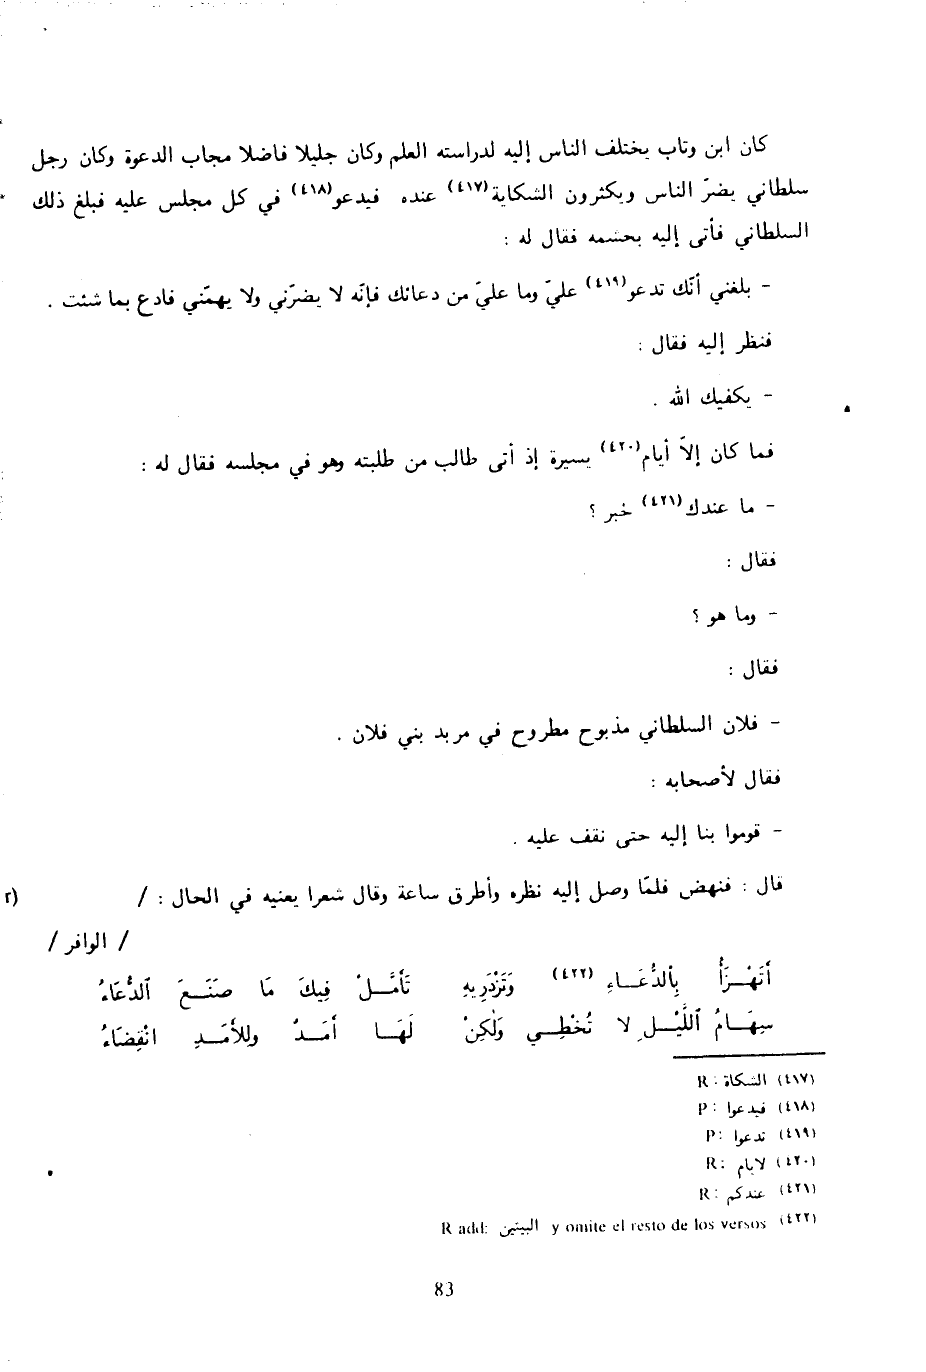 كان ابن وتاب يختلف الناس إليه لدراسته العلم وكان جليلا فاضلا مجاب الدعوة وكان رجل
سلطاني يضرّ الناس ويكثرون الشكاية(٤١٧) عنده فيدعو(٤١٨) في كل مجلس عليه فبلغ ذلك
السلطاني فأتى إليه بحشمه فقال له :
- بلغني أنّك تدعو(٤١٩) عليّ وما عليّ من دعائك فإنّه لا يضرّني ولا يهمّني فادع بما شئت .
فنظر إليه فقال :
- يكفيك الله .
فما كان إلاّ أيام(٤٢٠) يسيرة إذ أتى طالب من طلبته وهو في مجلسه فقال له :
- ما عندك(٤٢١) خبر ؟
فقال :
- وما هو ؟
فقال :
- فلان السلطاني مذبوح مطروح في مربد بني فلان .
فقال لأصحابه :
- قوموا بنا إليه حتى نقف عليه .
قال : فنهض فلمّا وصل إليه نظره وأطرق ساعة وقال شعرا يعنيه في الحال : / r)
/ الوافر /
أَتَهْزَأُ بِالدُّعَاءِ (٤٢٢) وَتَزْدَرِيهِ تَأَمَّلْ فِيكَ مَا صَنَعَ الدُّعَاءُ
سِهَامُ اللَّيْلِ لا تُخْطِي وَلَكِنْ لَهَا أَمَدٌ وللأَمَدِ انْقِضَاءُ
(٤١٧) الشكاة : R
(٤١٨) فيدعوا : P
(٤١٩) تدعوا : P
(٤٢٠) لايام : R
(٤٢١) عندكم : R
(٤٢٢) R add: البيتين y omite el resto de los versos
83